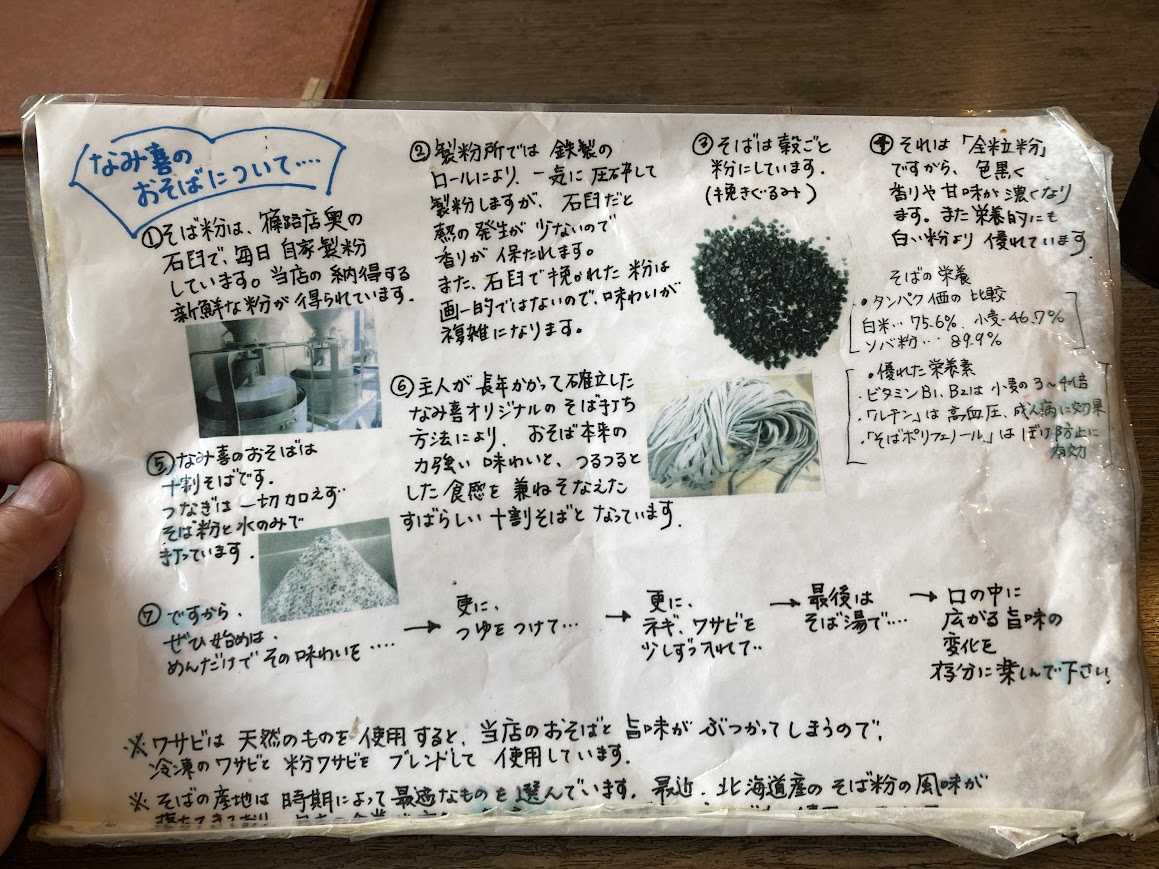 なみ喜の
おそばについて‥‥
①そば粉は、篠路店奥の
石臼で、毎日自家製粉
しています。当店の納得する
新鮮な粉が得られています.
②製粉所では 鉄製の
ロールにより、一気に圧砕して
製粉しますが、石臼だと
熱の発生が少ないので
香りが保たれます。
また、石臼で挽かれた粉は
画一的ではないので、味わいが
複雑になります。
③そばは殻ごと
粉にしています.
(挽きぐるみ)
④それは「全粒粉」
ですから、色黒く
香りや甘味が濃くなり
ます。また栄養的にも
白い粉より優れています
そばの栄養
・タンパク価の比較
白米‥75.6%、小麦‥46.7%
ソバ粉‥‥89.9%
・優れた栄養素
・ビタミンB1、B2は小麦の3〜4倍
・「ルチン」は高血圧、成人病に効果
・「そばポリフェノール」はぼけ防止に
有効
⑤なみ喜のおそばは
十割そばです.
つなぎは一切加えず
そば粉と水のみで
打っています.
⑥主人が長年かかって確立した
なみ喜オリジナルのそば打ち
方法により、おそば本来の
力強い味わいと、つるつると
した食感を兼ねそなえた
すばらしい十割そばとなっています.
⑦ですから、
ぜひ始めは、
めんだけでその味わいを‥‥
→ 更に、
つゆをつけて‥
→ 更に、
ネギ、ワサビを
少しずつ入れて‥
→ 最後は
そば湯で‥
→ 口の中に
広がる旨味の
変化を
存分に楽しんで下さい。
※ワサビは天然のものを使用すると、当店のおそばと旨味がぶつかってしまうので、
冷凍のワサビと粉ワサビをブレンドして使用しています.
※そばの産地は時期によって最適なものを選んでいます.最近、北海道産のそば粉の風味が